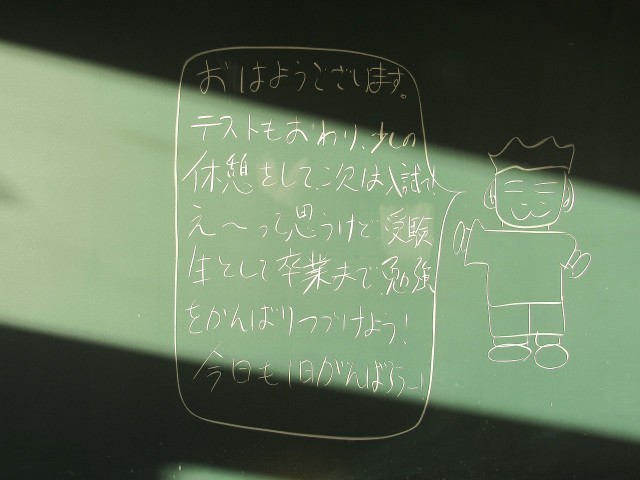 おはようございます。
テストもおわり、少しの
休憩をして、次は入試!!
え〜って思うけど受験
生として卒業まで勉強
をがんばりつづけよう!
今日も1日がんばろうー!